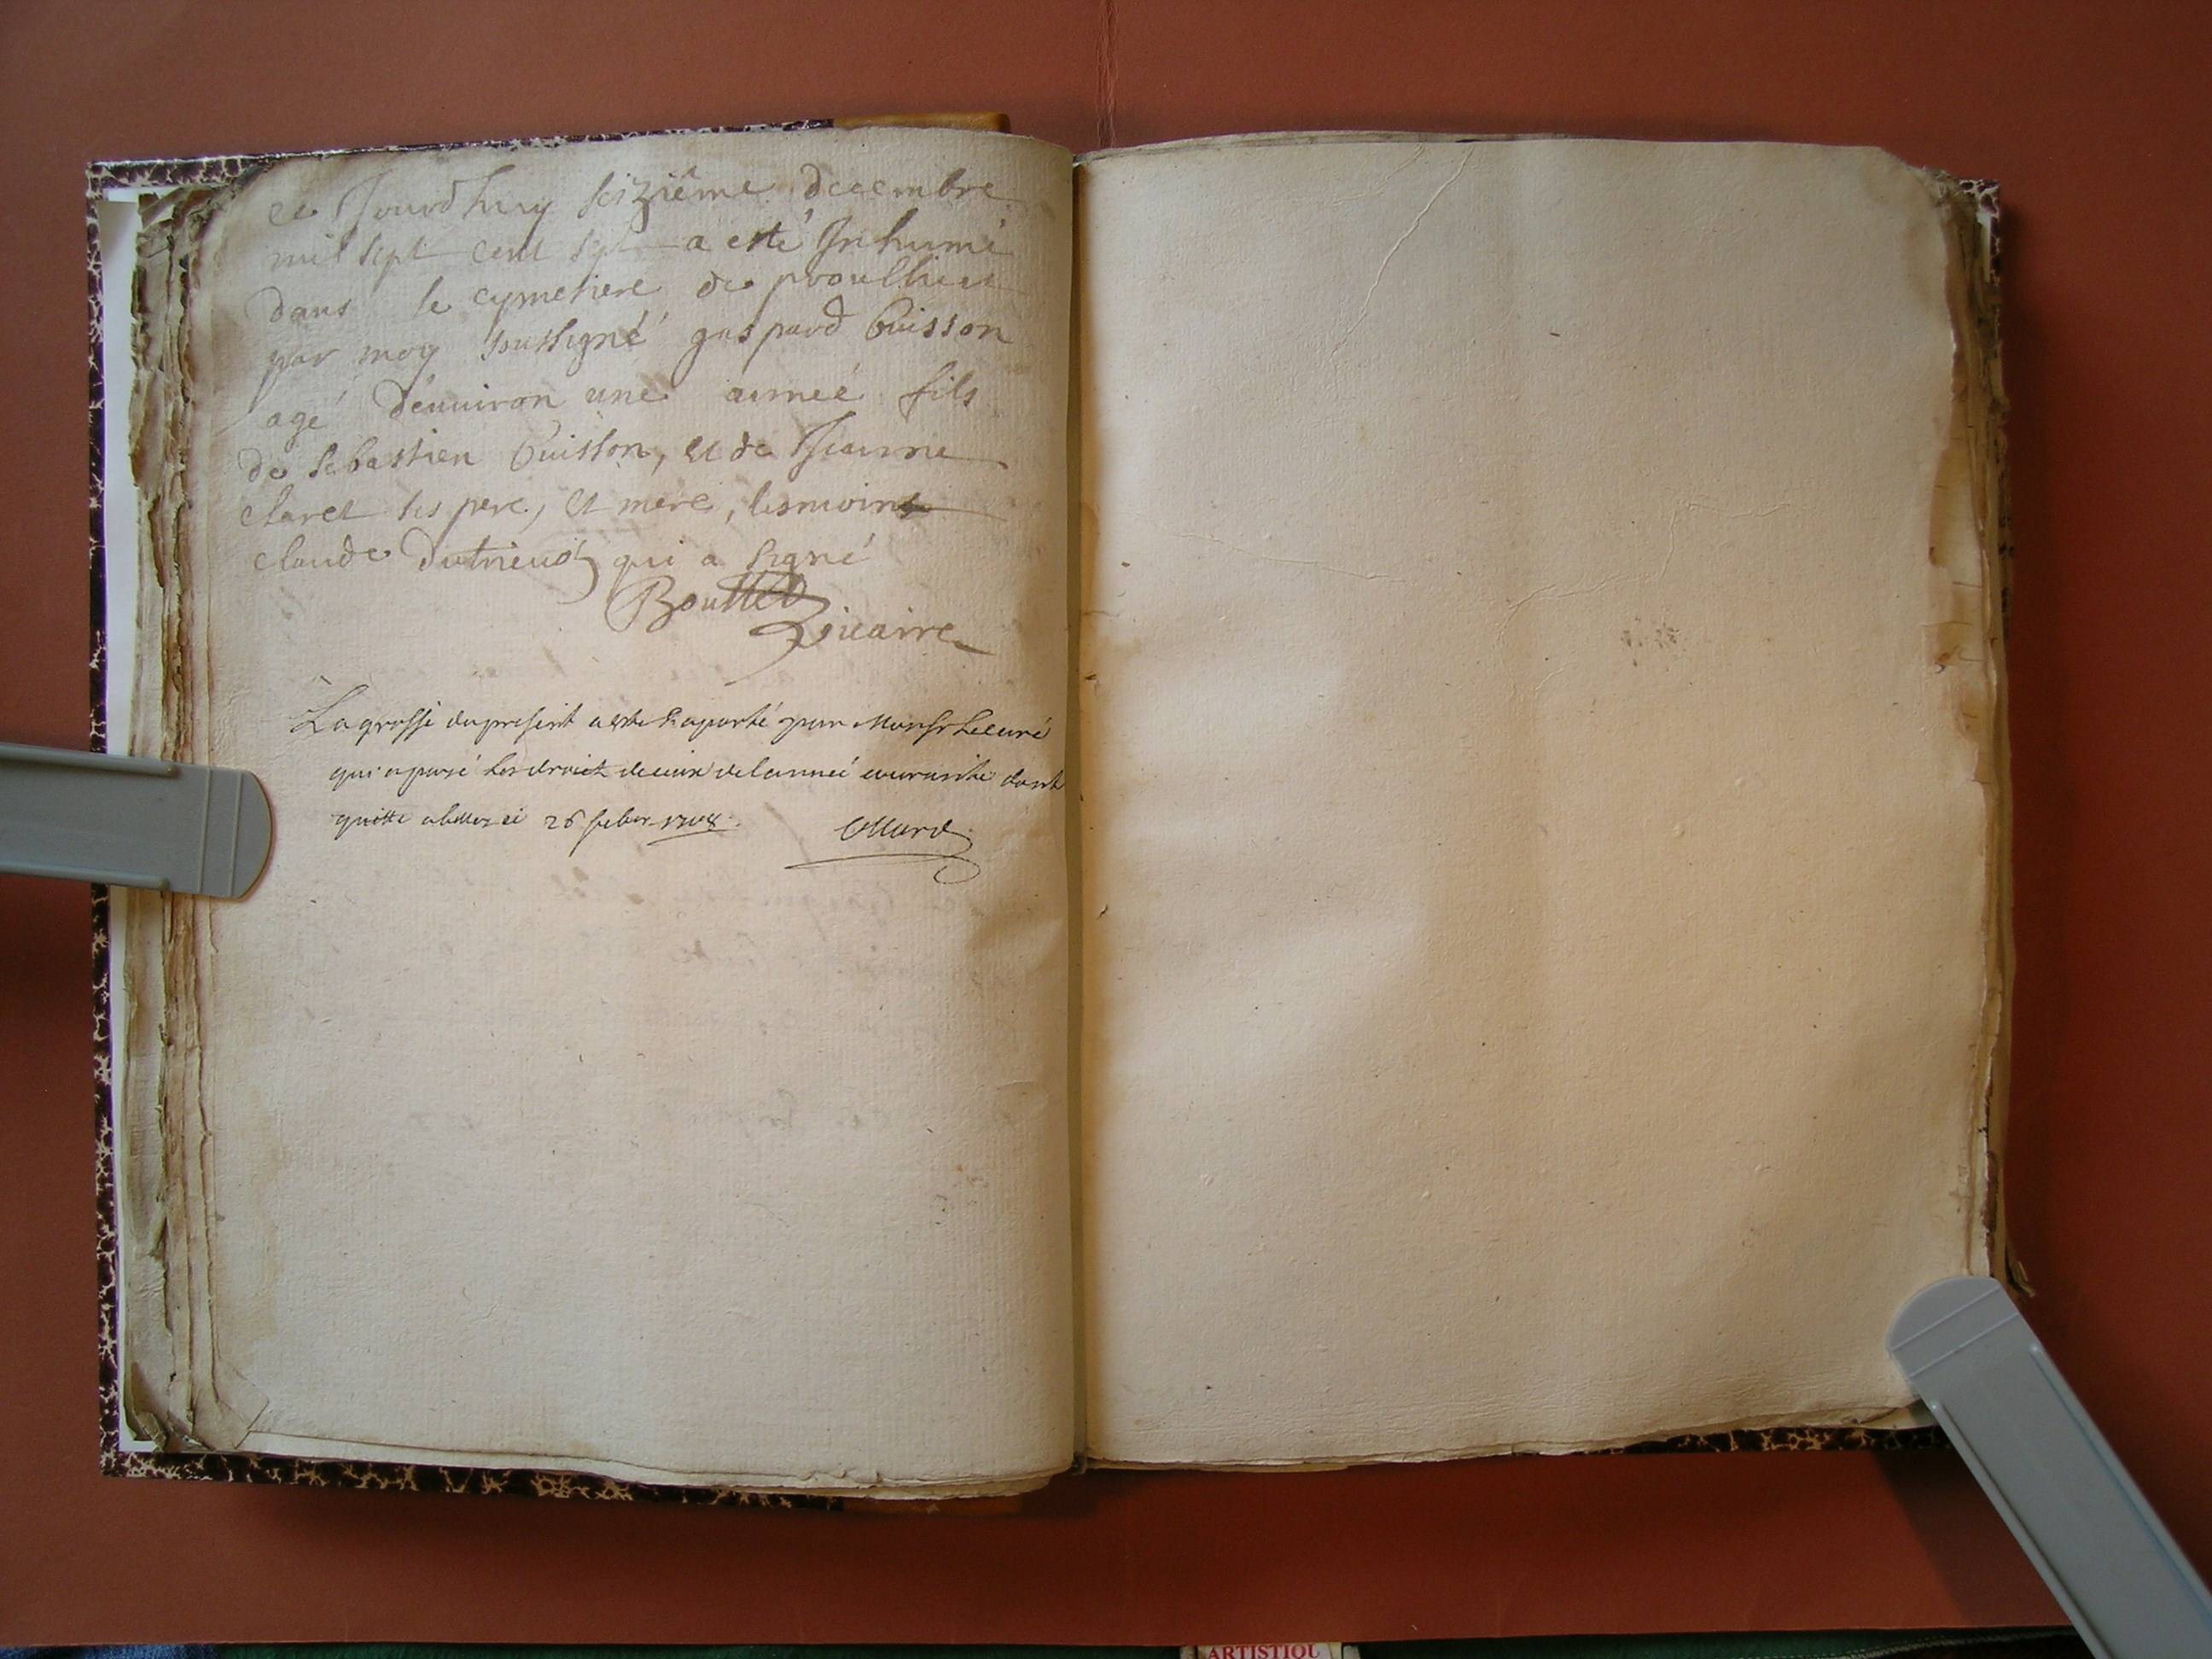 ce Jourdhuy seiziême decembre
mil sept cent sept a esté Inhumé
dans le cymetiere de proulhieu
par moy soussigné gaspard Buisson
agé d'enuiron une année fils
de sebastien Buisson, et de Jeanne
claret ses pere, et mere, tesmoins
claude Dutrieux qui a signé
Bouttet
vicaire
La grosse du present a este raporté par Monsr le curé
qui a payé les droictz deceux de lannéé courante dont
quitte a belley ce 26 feber 1708.
ARTISTIQU